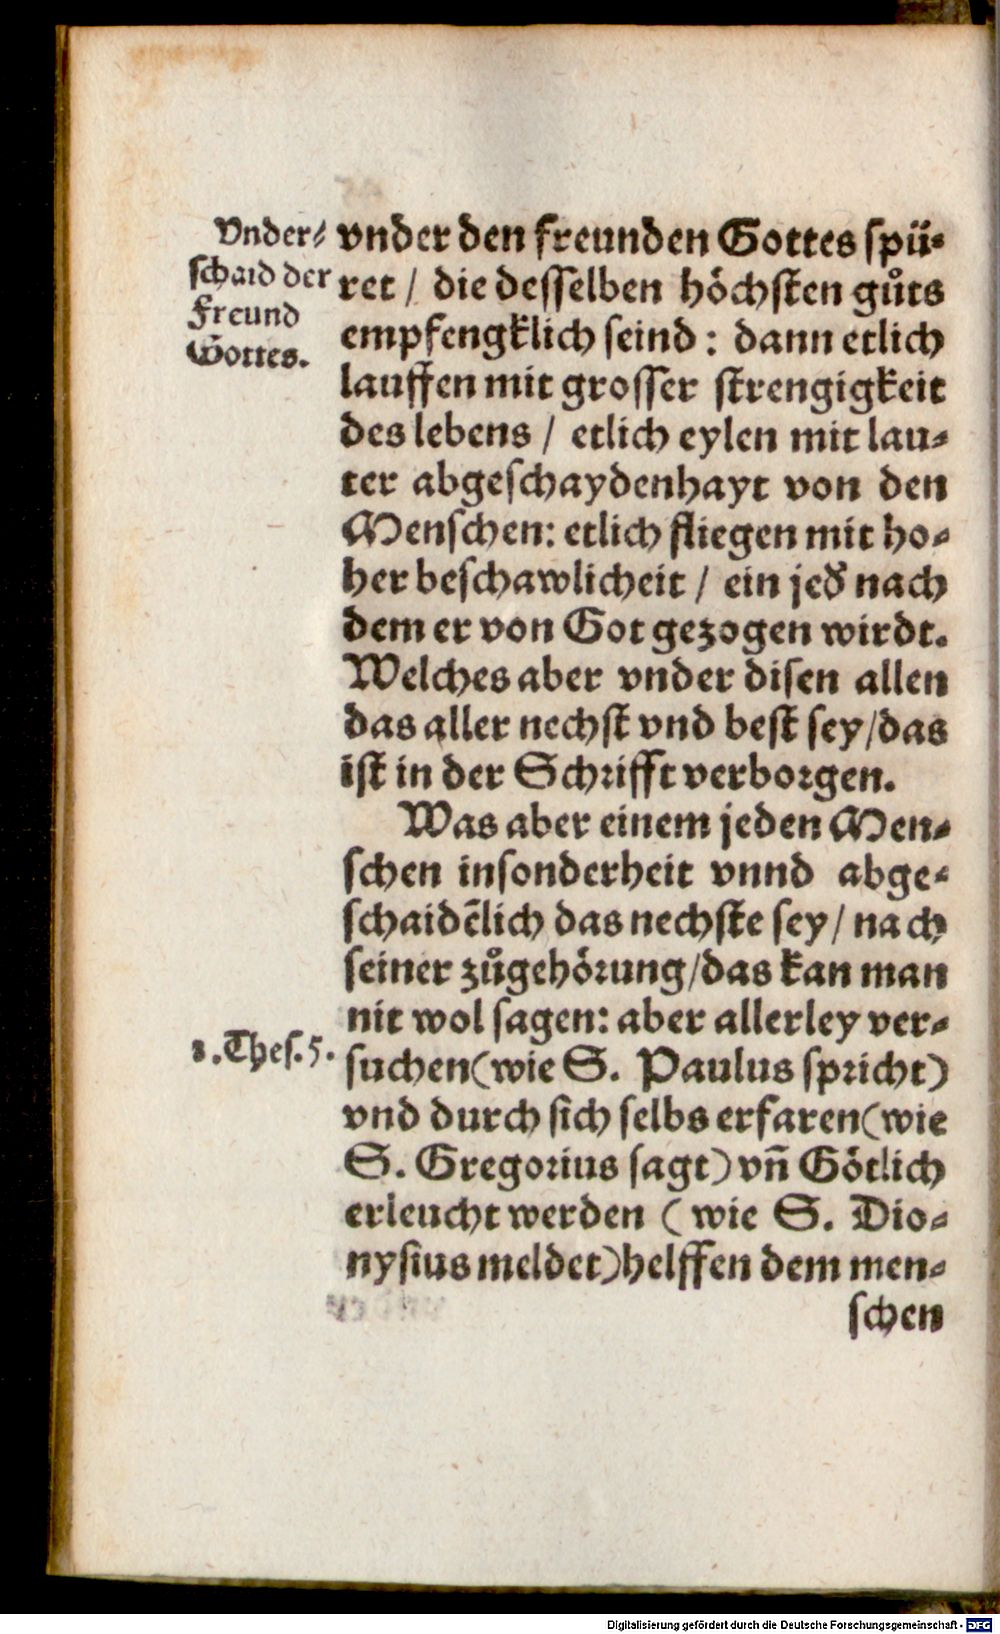 Vnder⸗
schaid der
Freund
Gottes.
vnder den freunden Gottes spü⸗
ret / die desselben höchsten gůts
empfengklich seind : dann etlich
lauffen mit grosser strengigkeit
des lebens / etlich eylen mit lau⸗
ter abgeschaydenhayt von den
Menschen: etlich fliegen mit ho⸗
her beschawlicheit / ein jed' nach
dem er von Got gezogen wirdt.
Welches aber vnder disen allen
das aller nechst vnd best sey/das
ist in der Schrifft verborgen.
Was aber einem jeden Men⸗
schen insonderheit vnnd abge⸗
schaidẽlich das nechste sey/ nach
seiner zůgehörung/das kan man
nit wol sagen: aber allerley ver⸗
1.Thes.5.
suchen(wie S. Paulus spricht)
vnd durch sich selbs erfaren(wie
S. Gregorius sagt)vñ Götlich
erleucht werden ( wie S. Dio⸗
nysius meldet)helffen dem men⸗
schen
Digitalisierung gefördert durch die Deutsche Forschungsgemeinschaft - DFG